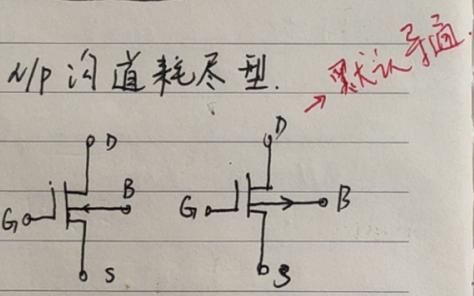 N/P 沟道耗尽型.
→ 默认导通.
D
D
G
B
G
B
S
S